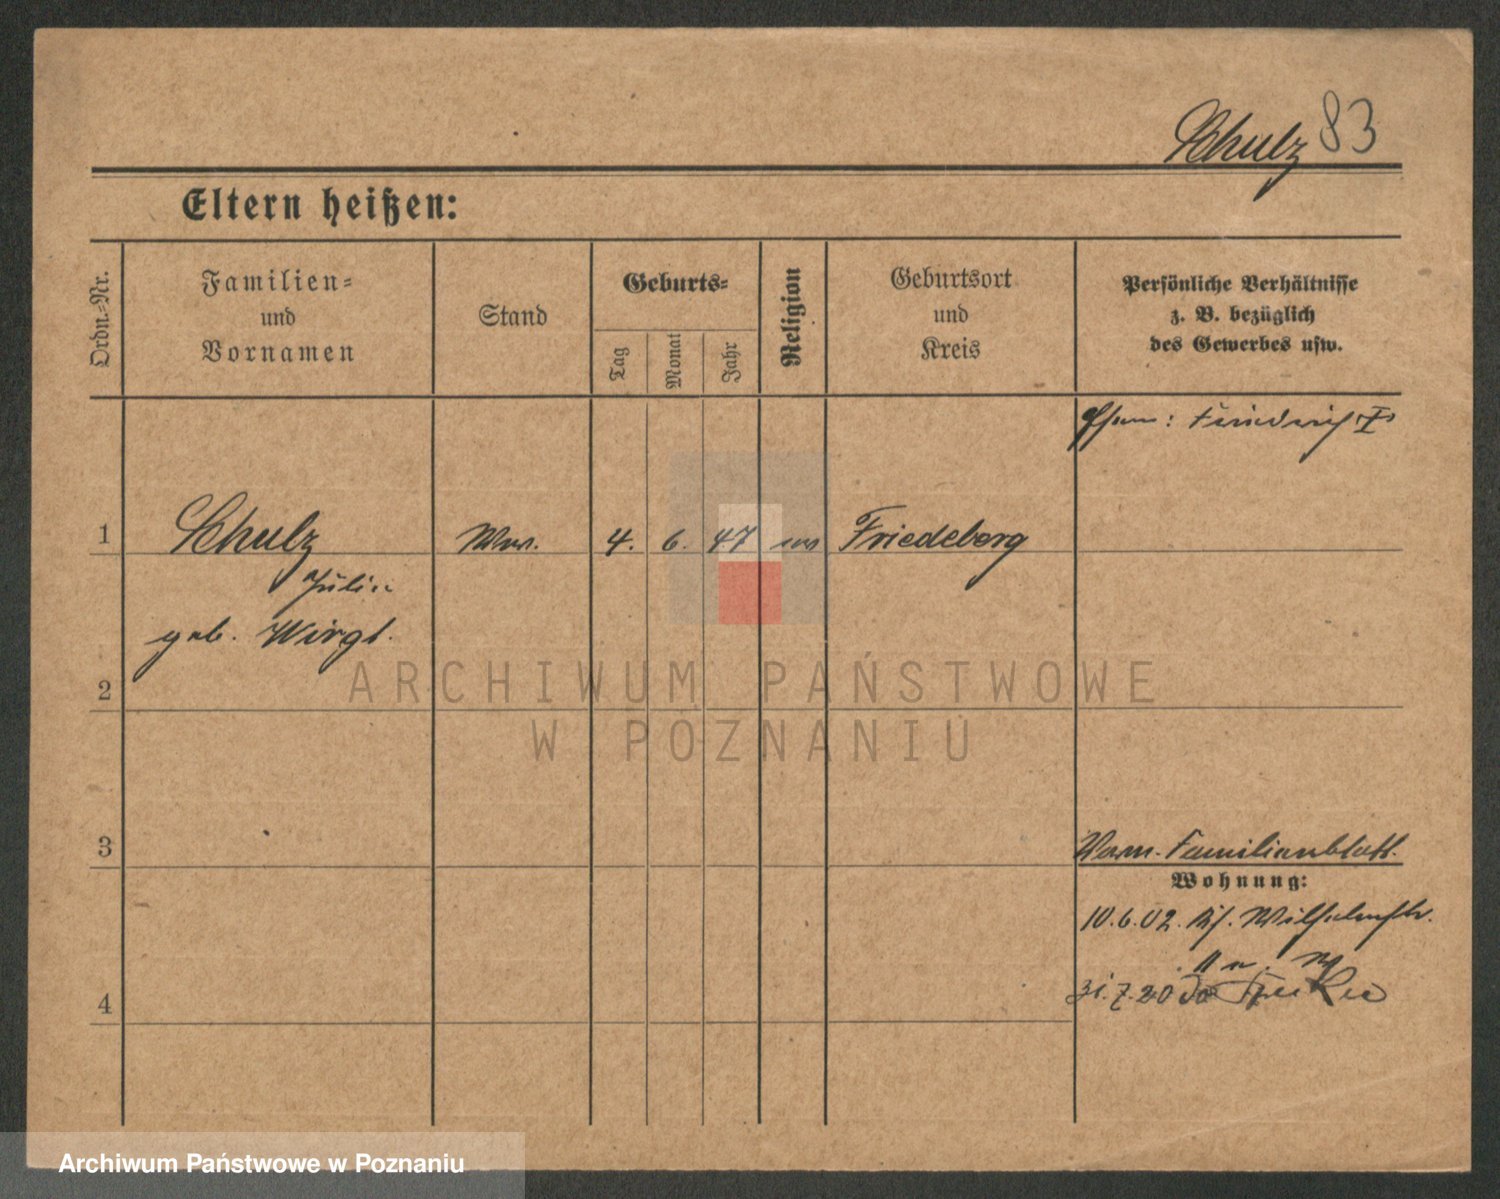 Schulz 83
Eltern heißen:
Ordn.-Nr.
Familien-
und
Vornamen
Stand
Geburts-
Tag
Monat
Jahr
Religion
Geburtsort
und
Kreis
Persönliche Verhältnisse
z. B. bezüglich
des Gewerbes usw.
Friedrich
1 Schulz Ww. 4. 6. 47 Friedeberg
geb.
2
ARCHIWUM PAŃSTWOWE
W POZNANIU
3
Familienblatt.
Wohnung:
10.6.02. Wilhelmstr.
31.7.20
4
Archiwum Państwowe w Poznaniu